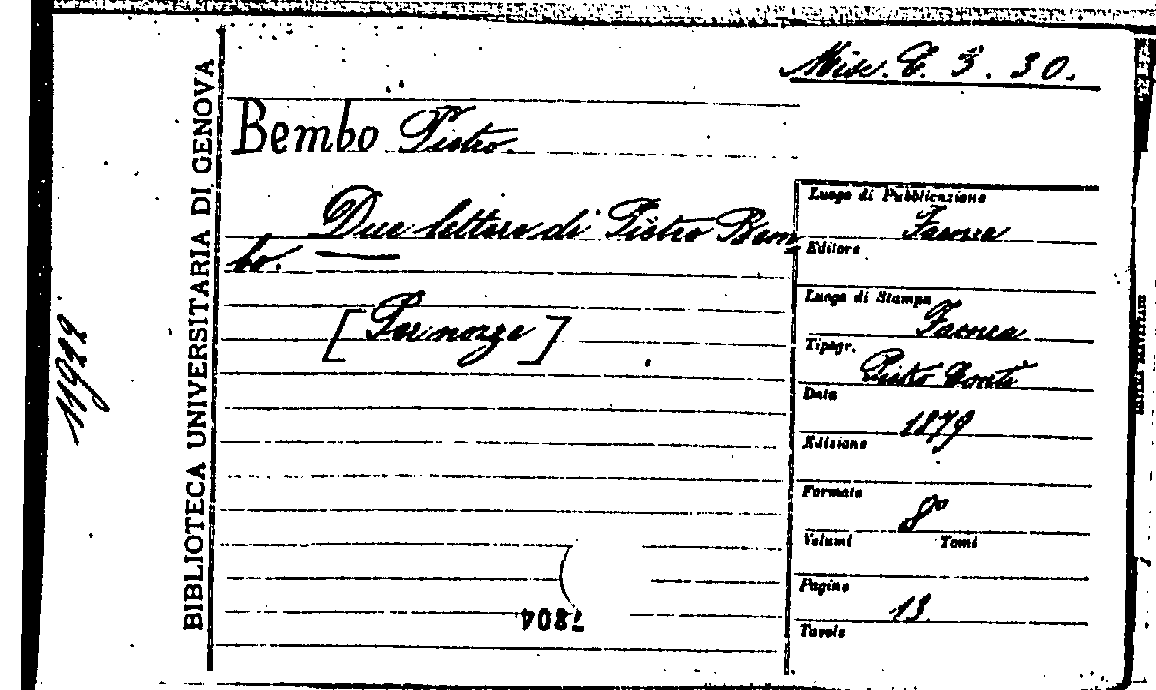 Misc. E. 3. 30.
BIBLIOTECA UNIVERSITARIA DI GENOVA
Bembo Pietro.
Due lettere di Pietro Bem-
bo.
[Per nozze]
Luogo di Pubblicazione
Faenza
Editore
Luogo di Stampa
Faenza
Tipogr.
Pietro Conti
Data
1879
Edizione
Formato
8°
Volumi Tomi
Pagine
13.
Tavole
7804